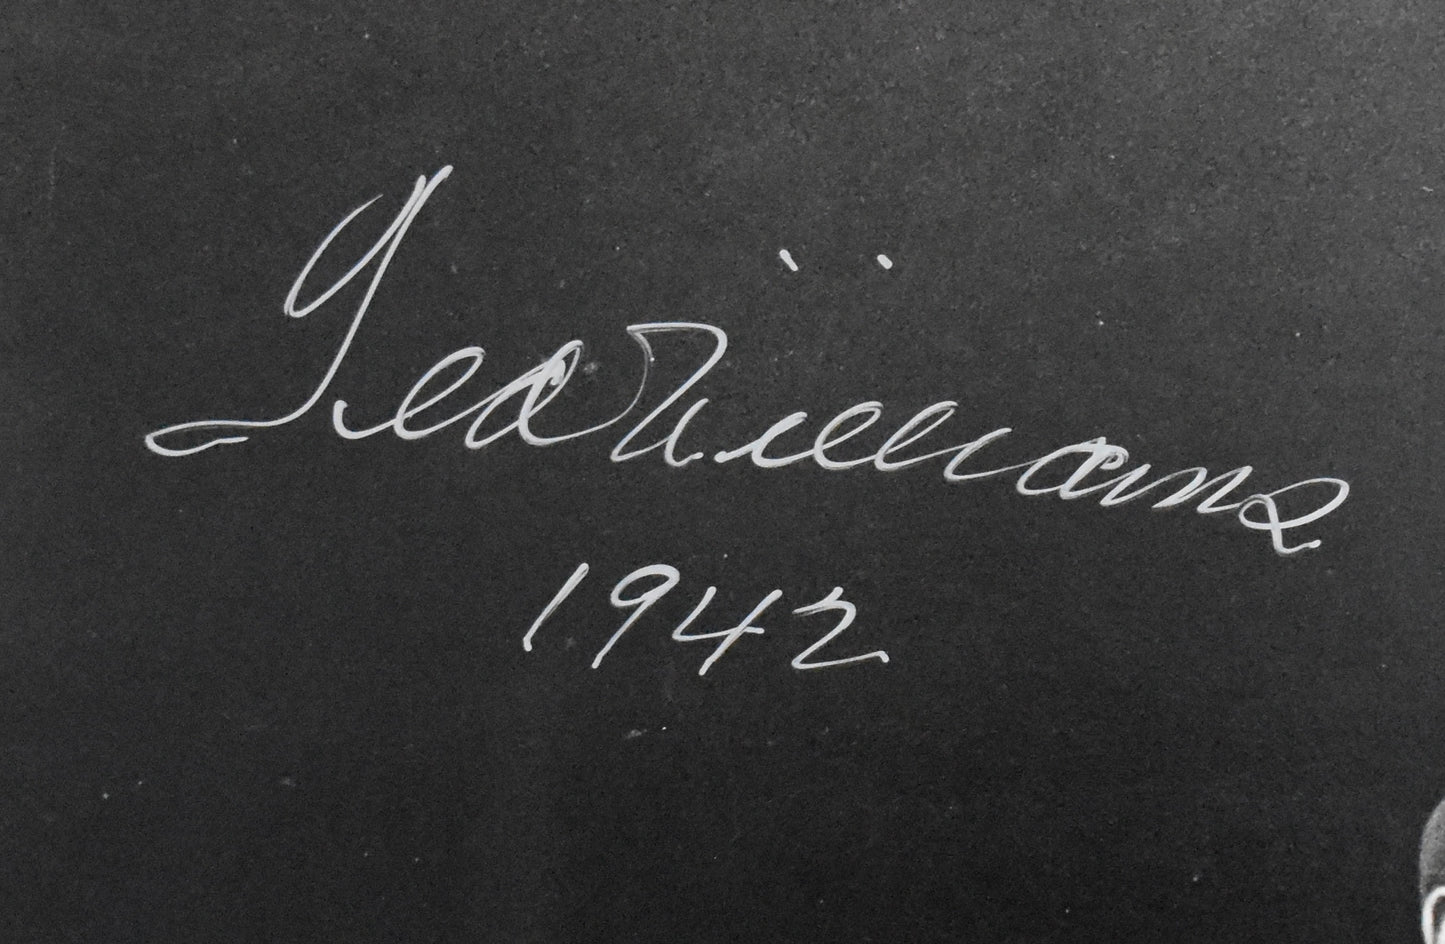 Ted Williams
1942